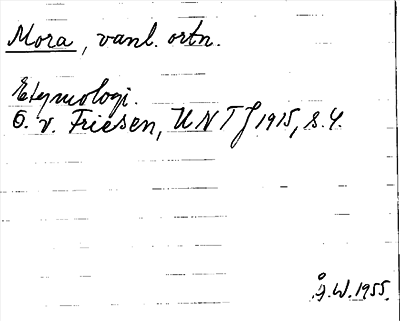 Mora, vanl. ortn.
Etymologi.
O. v. Friesen, UNTJ 1915, s. 4.
Å.W. 1955.